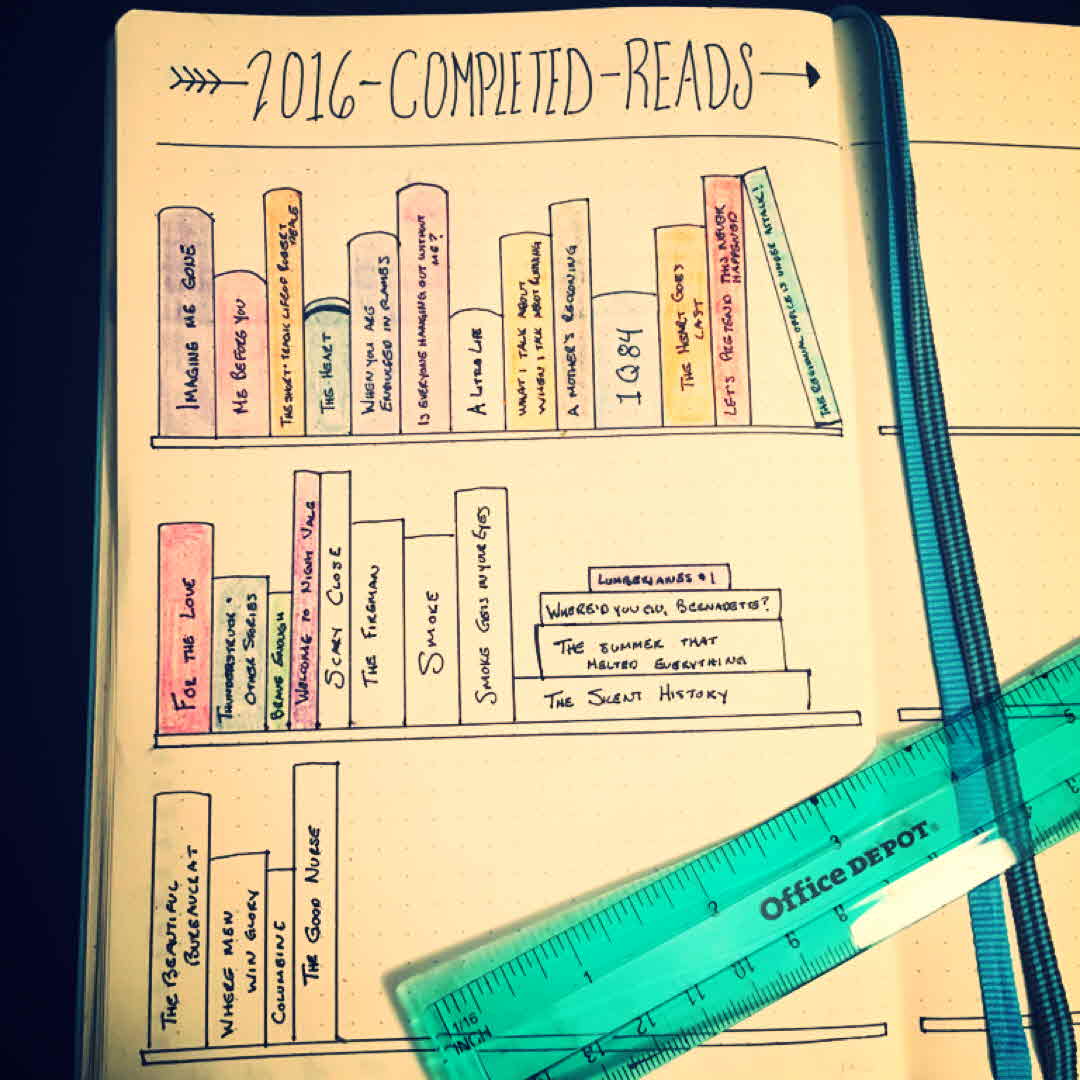 2016-COMPLETED-READS
IMAGING ME GONE
ME BEFORE YOU
THE SHORT + TRAGIC LIFE OF ROBERT
PEACE
THE HEART
WHEN YOU ARE
ENGULFED IN FLAMES
IS EVERYONE HANGING OUT WITHOUT
ME?
A LITTLE LIFE
WHAT I TALK ABOUT
WHEN I TALK ABOUT RUNNING
A MOTHER'S RECKONING
1Q84
THE HEART GOES
LAST
LET'S PRETEND THIS NEVER
HAPPENED
THE REGIONAL OFFICE IS UNDER ATTACK!
FOR THE LOVE
THUNDERSTRUCK +
OTHER STORIES
BRAVE ENOUGH
WELCOME TO NIGHT VALE
SCARY CLOSE
THE FIREMAN
SMOKE
SMOKE GETS IN YOUR EYES
LUMBERJANES #1
WHERE'D YOU GO, BERNADETTE?
THE SUMMER THAT
MELTED EVERYTHING
THE SILENT HISTORY
THE BEAUTIFUL
BUREAUCRAT
WHERE MEN
WIN GLORY
COLUMBINE
THE GOOD NURSE
Office DEPOT
1 2 3 4 5
1/16
INCH
13 12 11 10 9 8